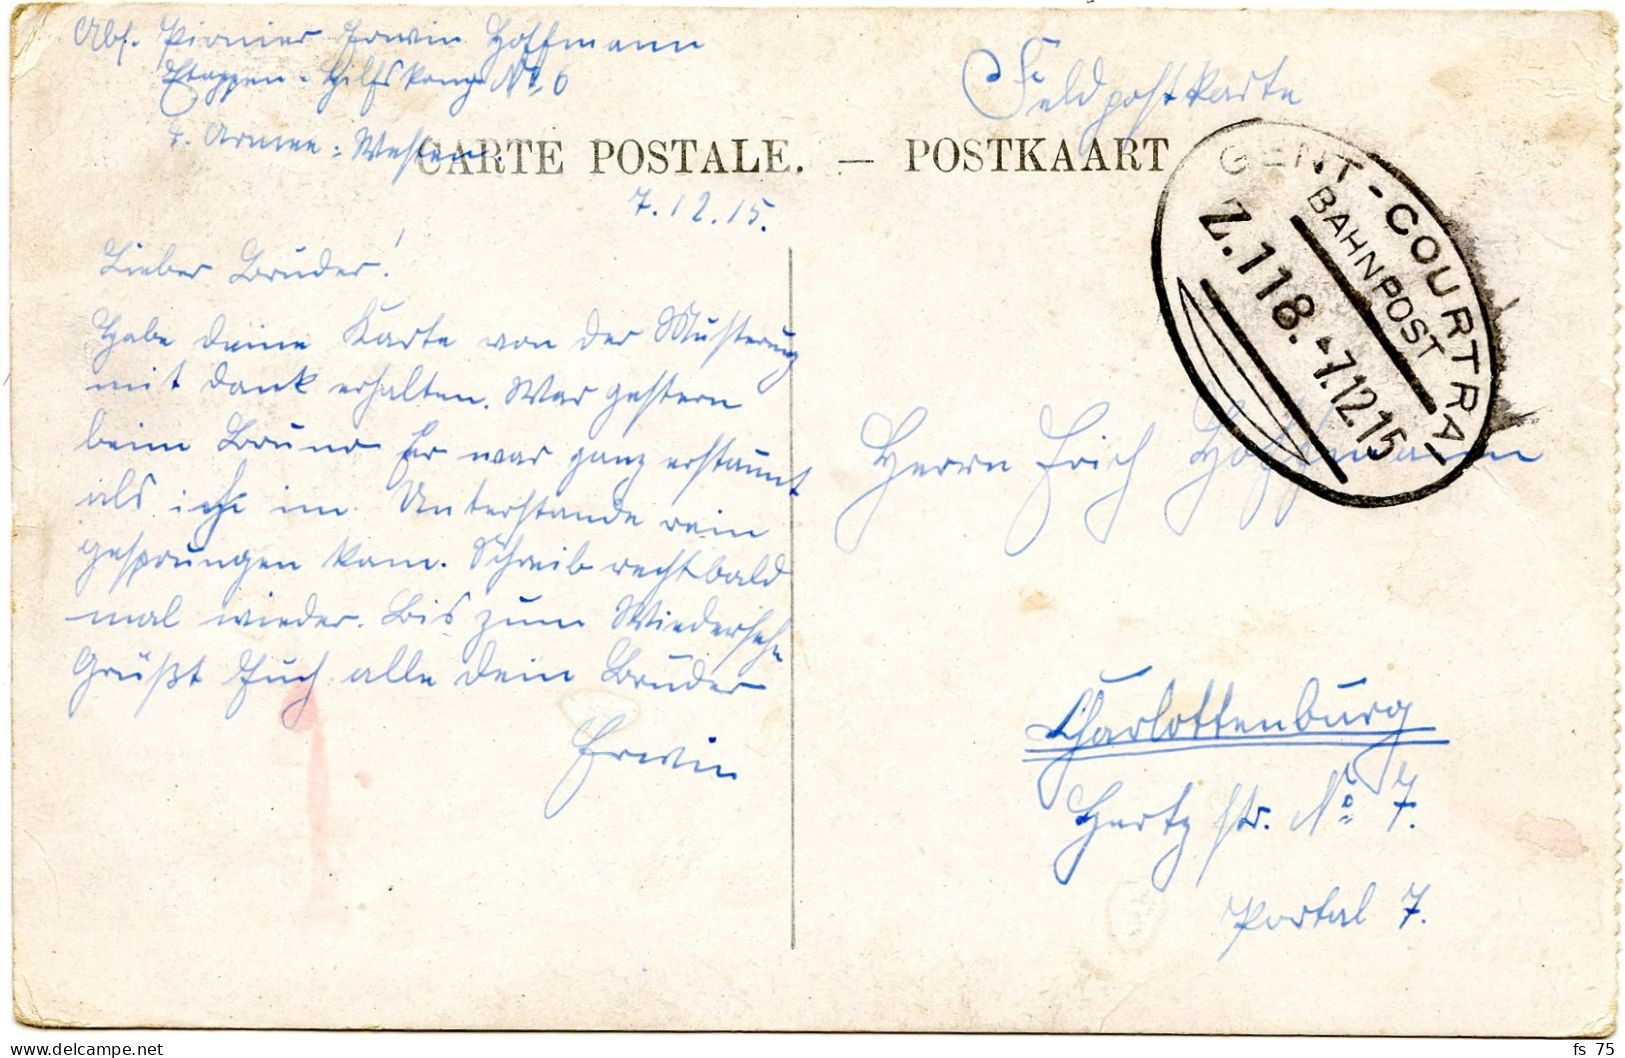 Abs. Pionier Erwin Hoffmann
Etappen-Hilfskomp No. 6
4. Armee: Westen.
Feldpostkarte
CARTE POSTALE. — POSTKAART
GENT-COURTRAI
BAHNPOST
Z.118. -7.12.15
7.12.15.
Lieber Bruder!
Habe deine Karte von der Musterung
mit dank erhalten. War gestern
beim Bruno Er war ganz erstaunt
als ich im Unterstande rein
gesprungen kam. Schreib recht bald
mal wieder. Bis zum Wiedersehn
Grüßt Euch alle dein Bruder
Erwin
Herrn Erich Hoffmann
Charlottenburg
Hertz str. No 7.
Portal 7.
delcampe.net
fs_75